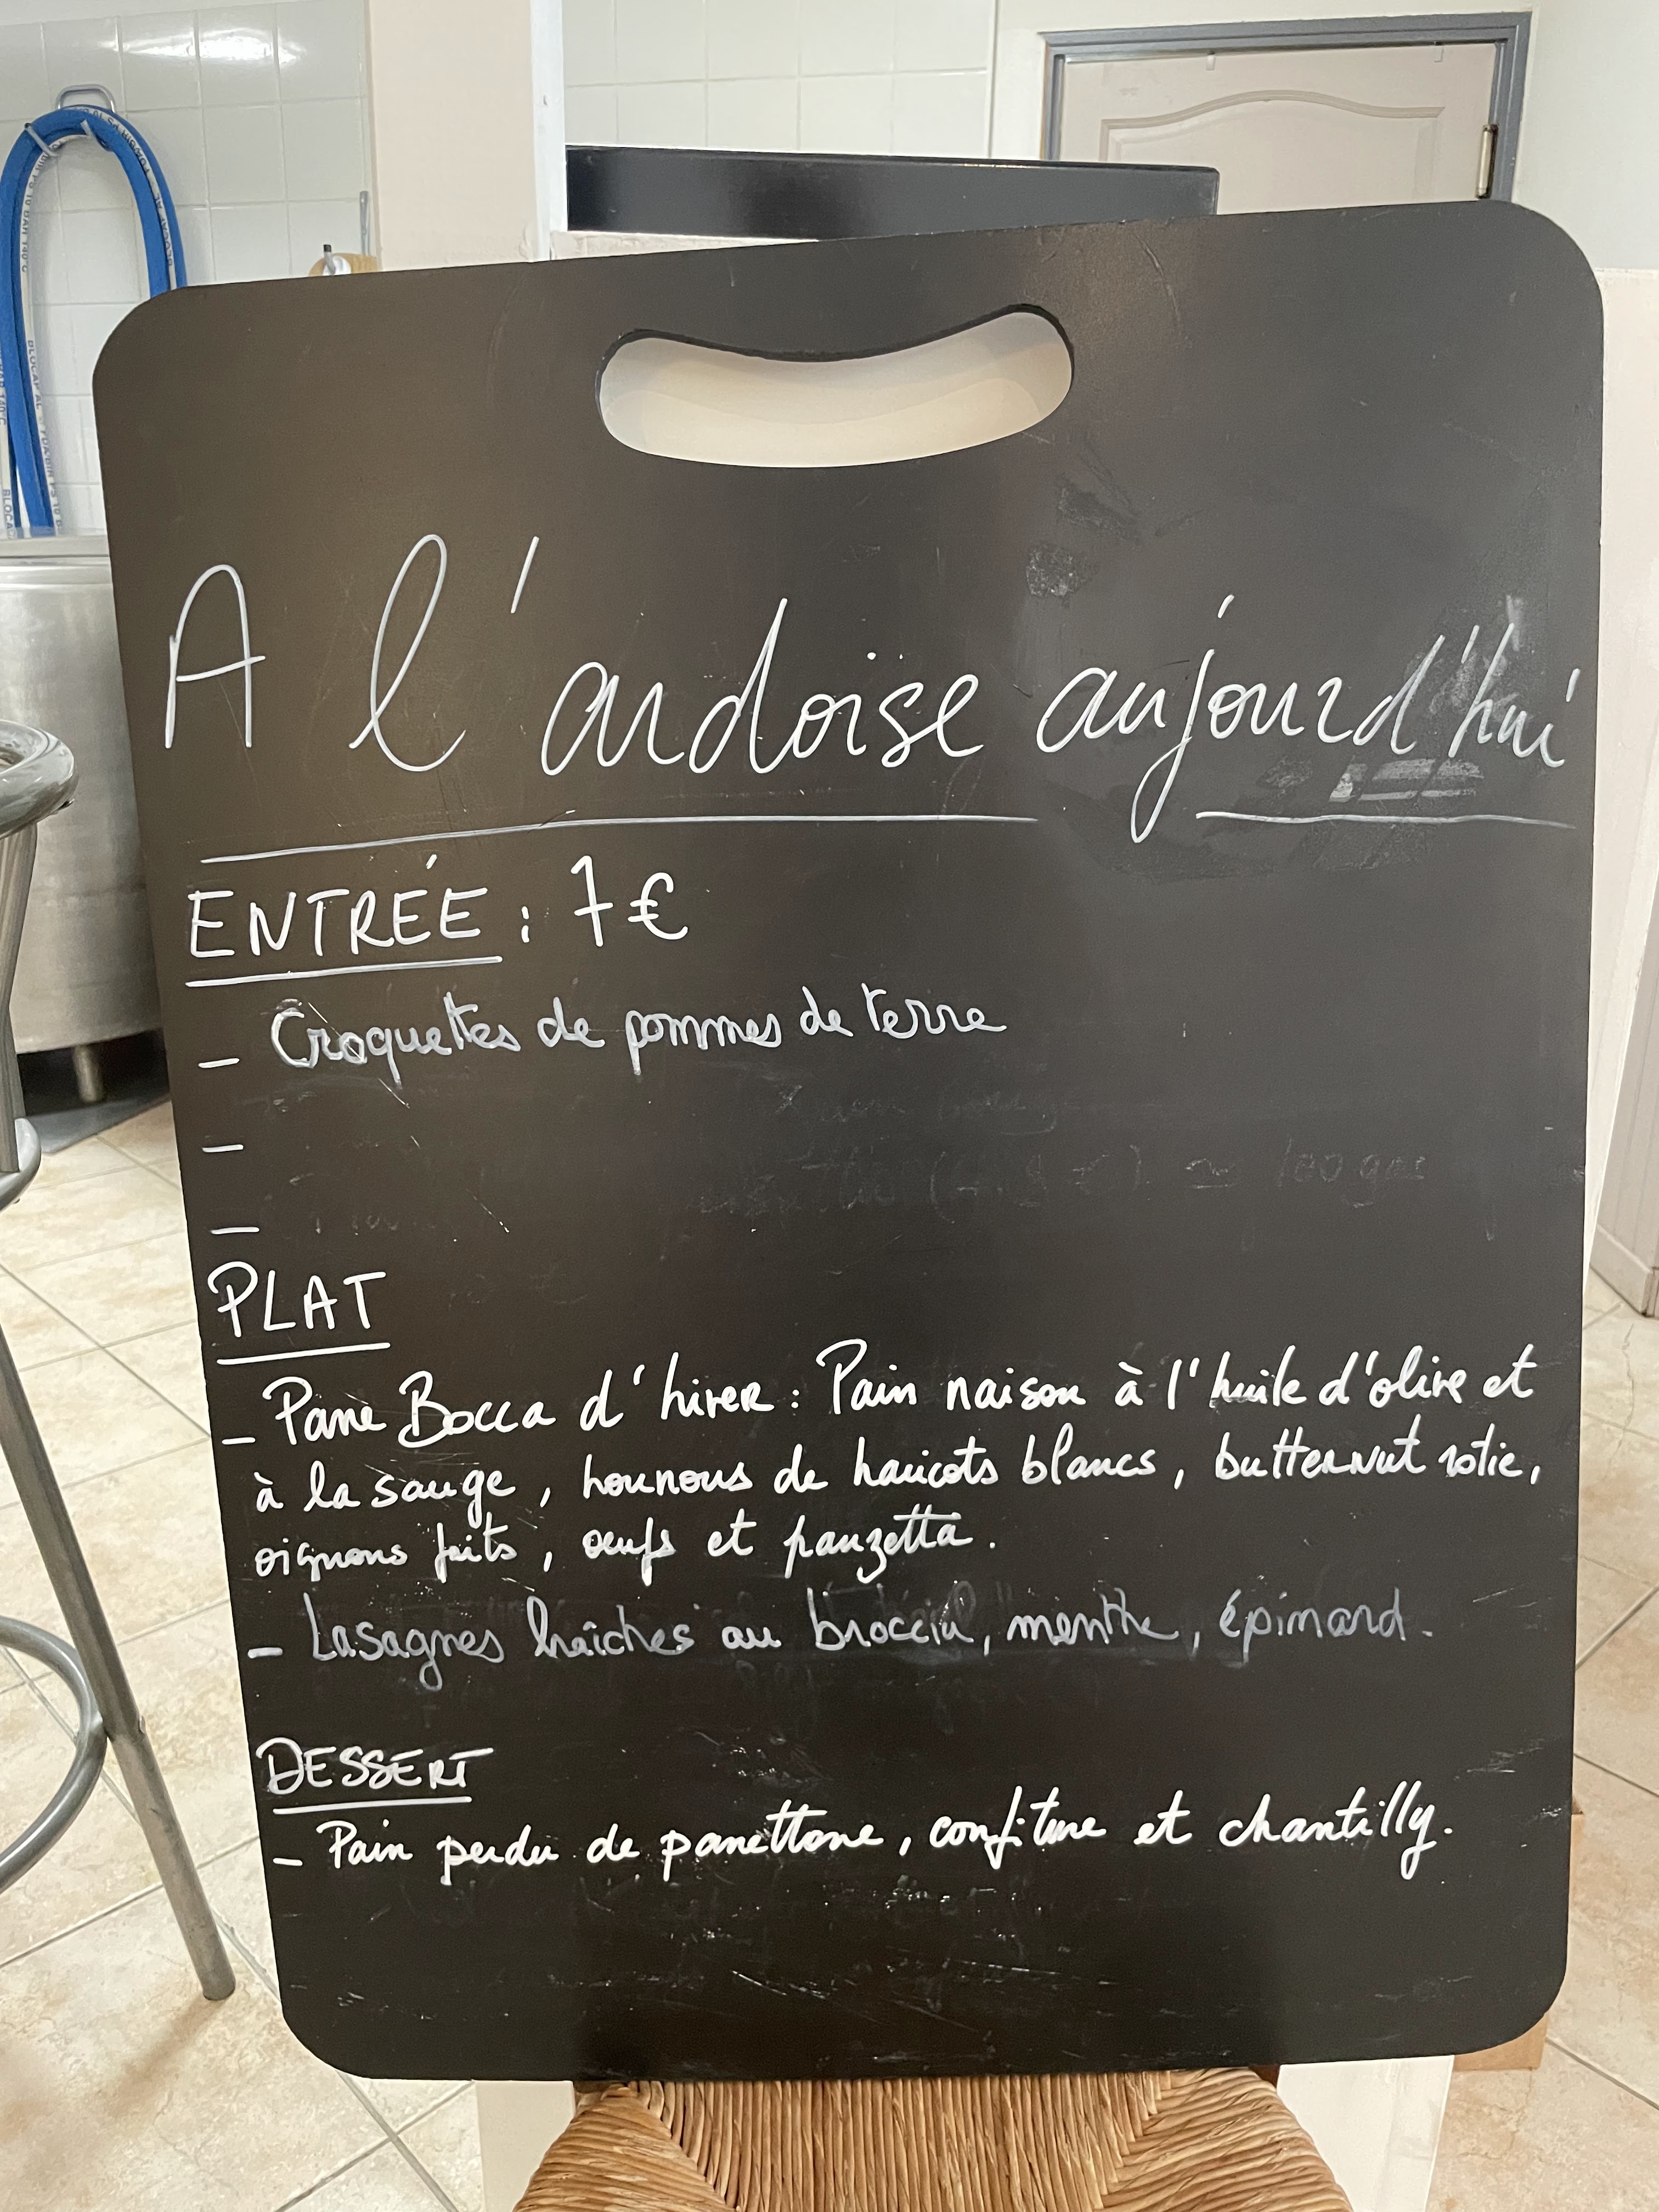 A l'ardoise aujourd'hui
ENTRÉE : 7€
- Croquettes de pommes de terre
-
-
PLAT
- Pane Bocca d'hiver : Pain maison à l'huile d'olive et
à la sauge, houmous de haricots blancs, butternut rotie,
oignons frits, œufs et panzetta.
- Lasagnes fraîches au brocciu, menthe, épinard.
DESSERT
- Pain perdu de panettone, confiture et chantilly.